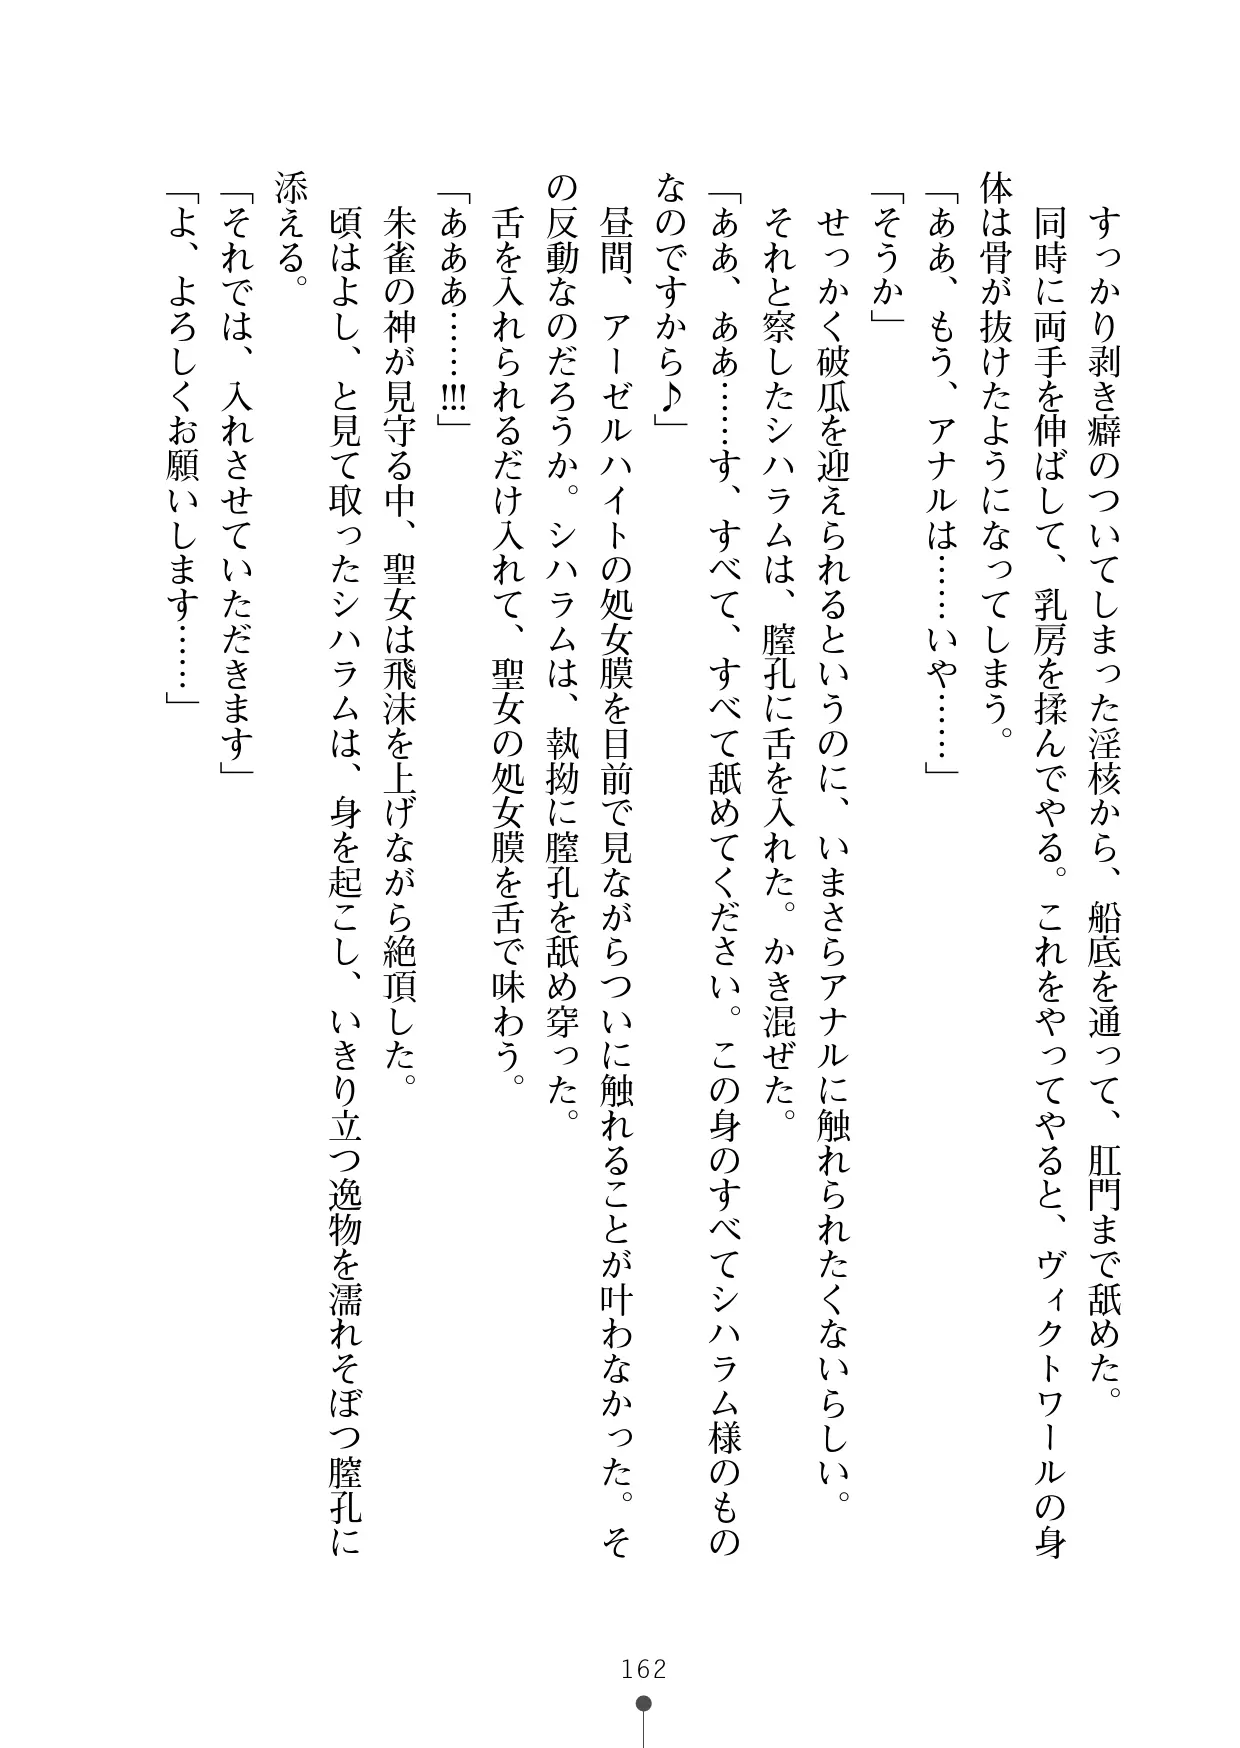 すっかり剥き癖のついてしまった淫核から、船底を通って、肛門まで舐めた。
同時に両手を伸ばして、乳房を揉んでやる。これをやってやると、ヴィクトワールの身
体は骨が抜けたようになってしまう。
「ああ、もう、アナルは……いや……」
「そうか」
せっかく破瓜を迎えられるというのに、いまさらアナルに触れられたくないらしい。
それと察したシハラムは、膣孔に舌を入れた。かき混ぜた。
「ああ、ああ……す、すべて、すべて舐めてください。この身のすべてシハラム様のもの
なのですから♪」
昼間、アーゼルハイトの処女膜を目前で見ながらついに触れることが叶わなかった。そ
の反動なのだろうか。シハラムは、執拗に膣孔を舐め穿った。
舌を入れられるだけ入れて、聖女の処女膜を舌で味わう。
「あああ……!!!」
朱雀の神が見守る中、聖女は飛沫を上げながら絶頂した。
頃はよし、と見て取ったシハラムは、身を起こし、いきり立つ逸物を濡れそぼつ膣孔に
添える。
「それでは、入れさせていただきます」
「よ、よろしくお願いします……」
162